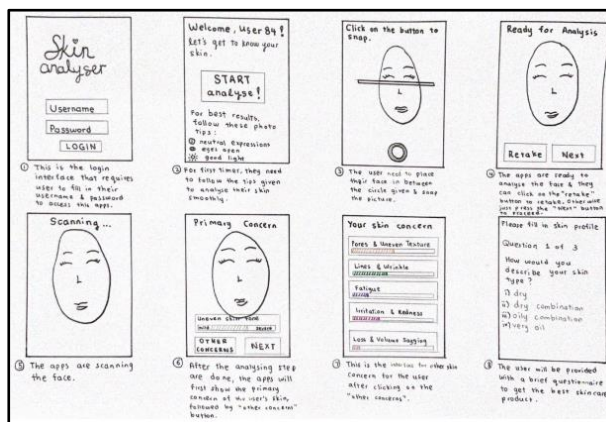 Skin
analyser
Username
Password
LOGIN
① This is the login
interface that requires
user to fill in their
username & password
to access this apps.
Welcome, User 84!
let's get to know your
skin.
START
analyse!
For best results,
follow these photo
tips:
neutral expressions
eyes open
good light
② For first timer, they need
to follow the tips given
to analyse their skin
smoothly.
Click on the button to
snap.
③ The user need to place
their face in between
the circle given & snap
the picture.
Ready for Analysis
Retake
Next
④ The apps are ready to
analyse the face & they
can click on the "retake"
button to retake. Otherwise
just press the "next" button
to proceed.
Scanning...
⑤ The apps are scanning
the face.
Primary Concern
Uneven skin tone
OTHER
CONCERNS
NEXT
⑥ After the analysing step
are done, the apps will
first show the primary
concern of the user's skin,
followed by "other concerns"
button.
Your skin concern
Pores & Uneven Texture
Lines & Wrinkle
Fatigue
Irritation & Redness
Loss & Volume Sagging
⑦ This is the interface for other skin
concern for the user
after clicking on the
"other concerns".
Please fill in skin profile
Question 1 of 3
How would you
describe your skin
type?
i) dry
ii) dry combination
iii) oily combination
iv) very oil
⑧ The user will be provided
with a brief questionnaire
to get the best skincare
product.